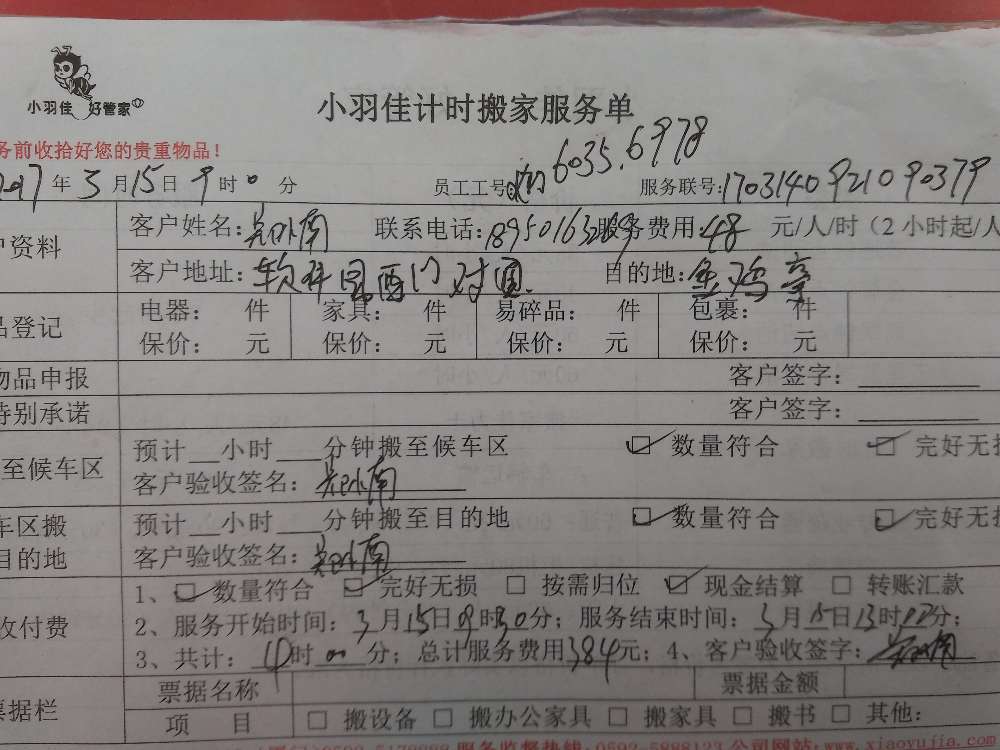 小羽佳 好管家
小羽佳计时搬家服务单
务前收拾好您的贵重物品!
2017年3月15日9时0分 员工工号: 6035.6978 服务联号:1703140921090379
户资料 客户姓名: 联系电话: 服务费用:48 元/人/时(2小时起/人
客户地址:软件园西门对面 目的地:金鸡亭
品登记 电器: 件 家具: 件 易碎品: 件 包裹: 件
保价: 元 保价: 元 保价: 元 保价: 元
物品申报 客户签字:
特别承诺 客户签字:
至候车区 预计__小时___分钟搬至候车区 ☑数量符合 ☑完好无损
客户验收签名:
车区搬目的地 预计__小时___分钟搬至目的地 ☑数量符合 ☑完好无损
客户验收签名:
收付费 1、☑数量符合 ☑完好无损 □按需归位 ☑现金结算 □转账汇款
2、服务开始时间:3月15日9时30分;服务结束时间:3月15日13时 分;
3、共计: 时00分;总计服务费用384元;4、客户验收签字:
票据栏 票据名称 票据金额
项 目 □搬设备 □搬办公家具 □搬家具 □搬书 □其他:
服务监督热线:0592-5888123 公司网站:www.xiaoyujia.com